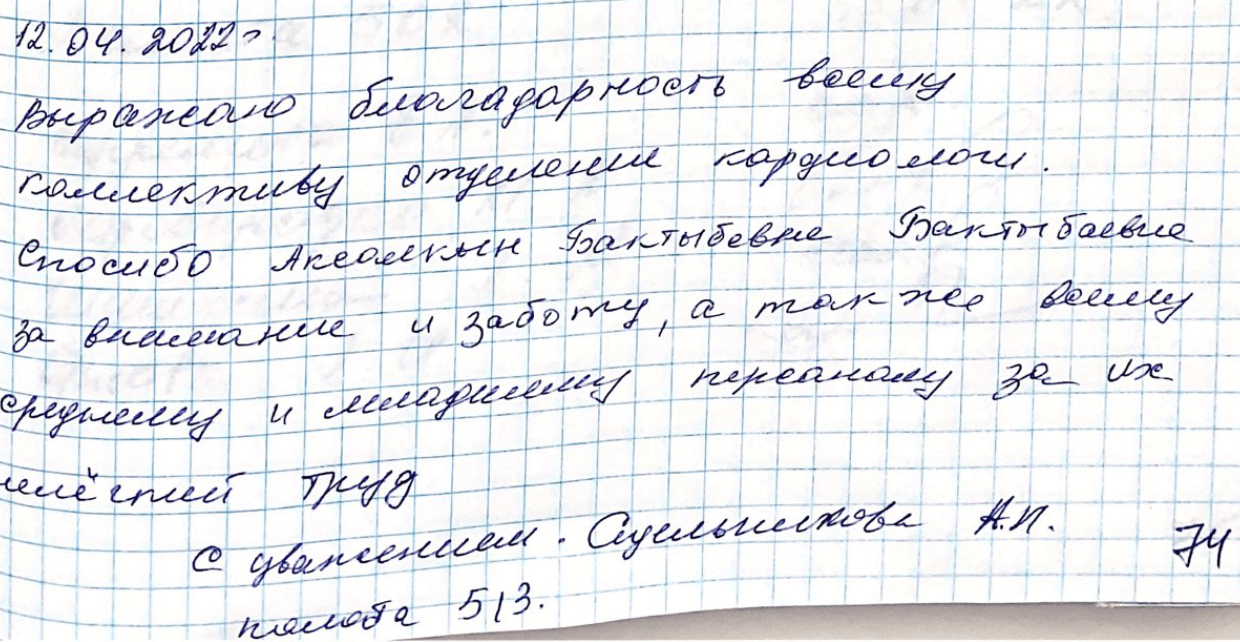 12.04.2022г.
Выражаю благодарность всему
коллективу отделении кардиологи.
Спасибо Бактыбевне Бактыбаевне
за внимание и заботу, а так же всему
среднему и младшему персоналу за их
нелёгкий труд
С уважением. Сидельникова А.П.
палата 513.
74